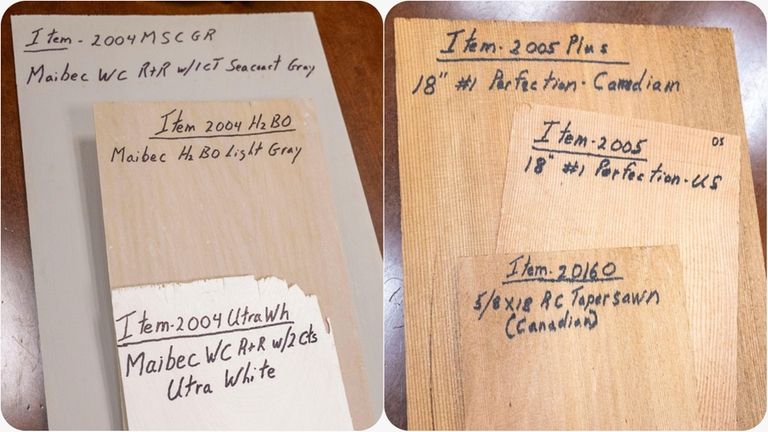 Item - 2004 MSCGR
Maibec WC R+R w/1CT Seacoast Gray
Item 2004 H2BO
Maibec H2BO Light Gray
Item-2004 UtraWh
Maibec WC R+R w/2Cts
Utra White
Item-2005 Plus
18" #1 Perfection - Canadian
OS
Item-2005
18" #1 Perfection-US
Item-20160
5/8x18 RC Tapersawn
(Canadian)